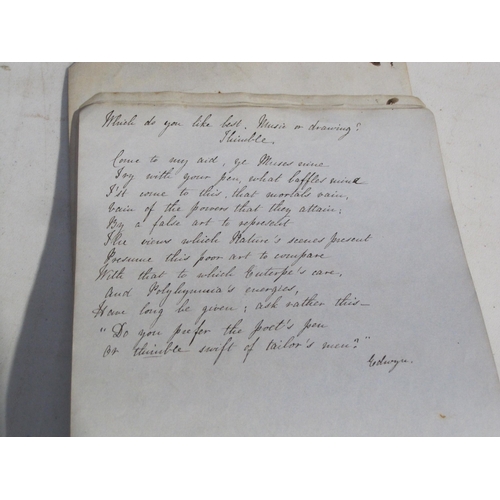 Which do you like best. Music or drawing?
Thimble.
Come to my aid, ye Muses nine
Try with your pen, what baffles mine
I'st come to this, that mortals vain,
Vain of the powers that they attain;
By a false art to represent
The views which Nature's scenes present
Presume this poor art to compare
With that to which Euterpe's care,
And Polyhymnia's energies,
Have long be given; ask rather this—
"Do you prefer the poet's pen
or thimble swift of tailor's men?"
Edwyn.